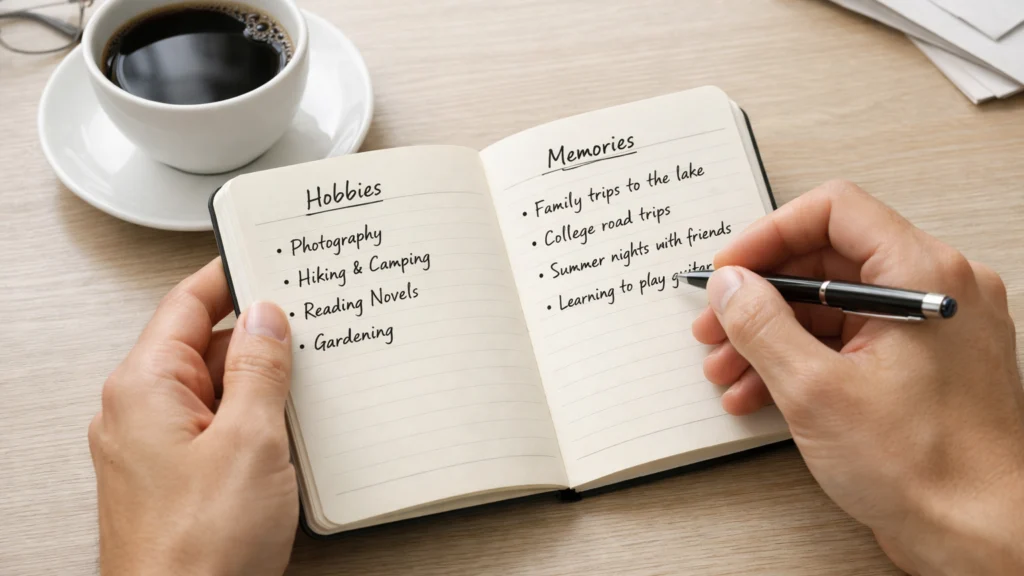 Hobbies
• Photography
• Hiking & Camping
• Reading Novels
• Gardening
Memories
• Family trips to the lake
• College road trips
• Summer nights with friends
• Learning to play guitar